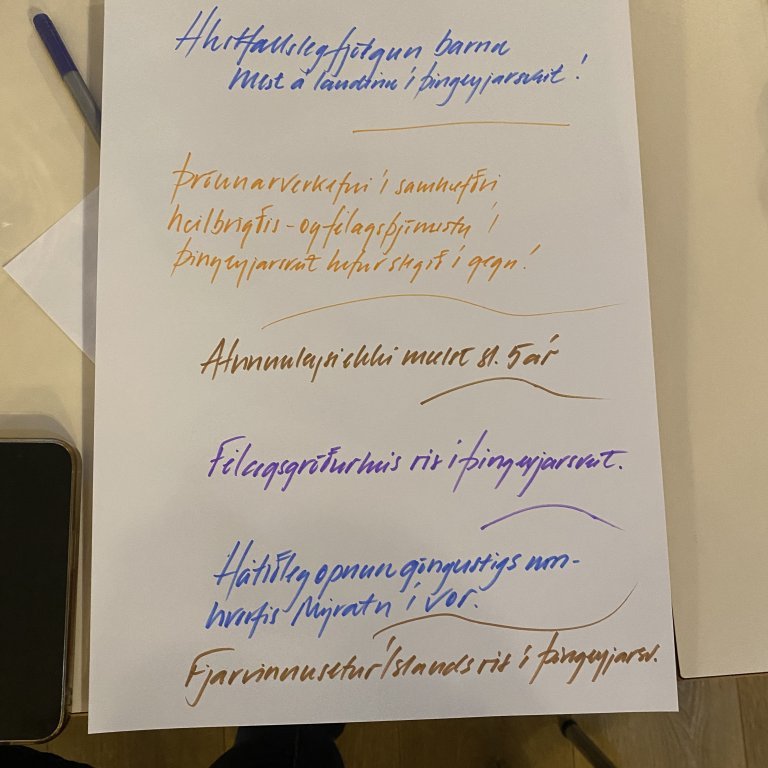 Hlutfallsleg fjölgun barna
Mest á landinu í þingeyjarsveit!
Þróunarverkefni í samhæfðri
heilbrigðis- og félagsþjónustu í
Þingeyjarsveit hefur slegið í gegn!
Atvinnuleysi ekki mælst sl. 5 ár
Félagsgróðurhús rís í þingeyjarsveit.
Hátíðleg opnun göngustígs um-
hverfis Mývatn í vor.
Fjarvinnusetur Íslands rís í þingeyjarsv.